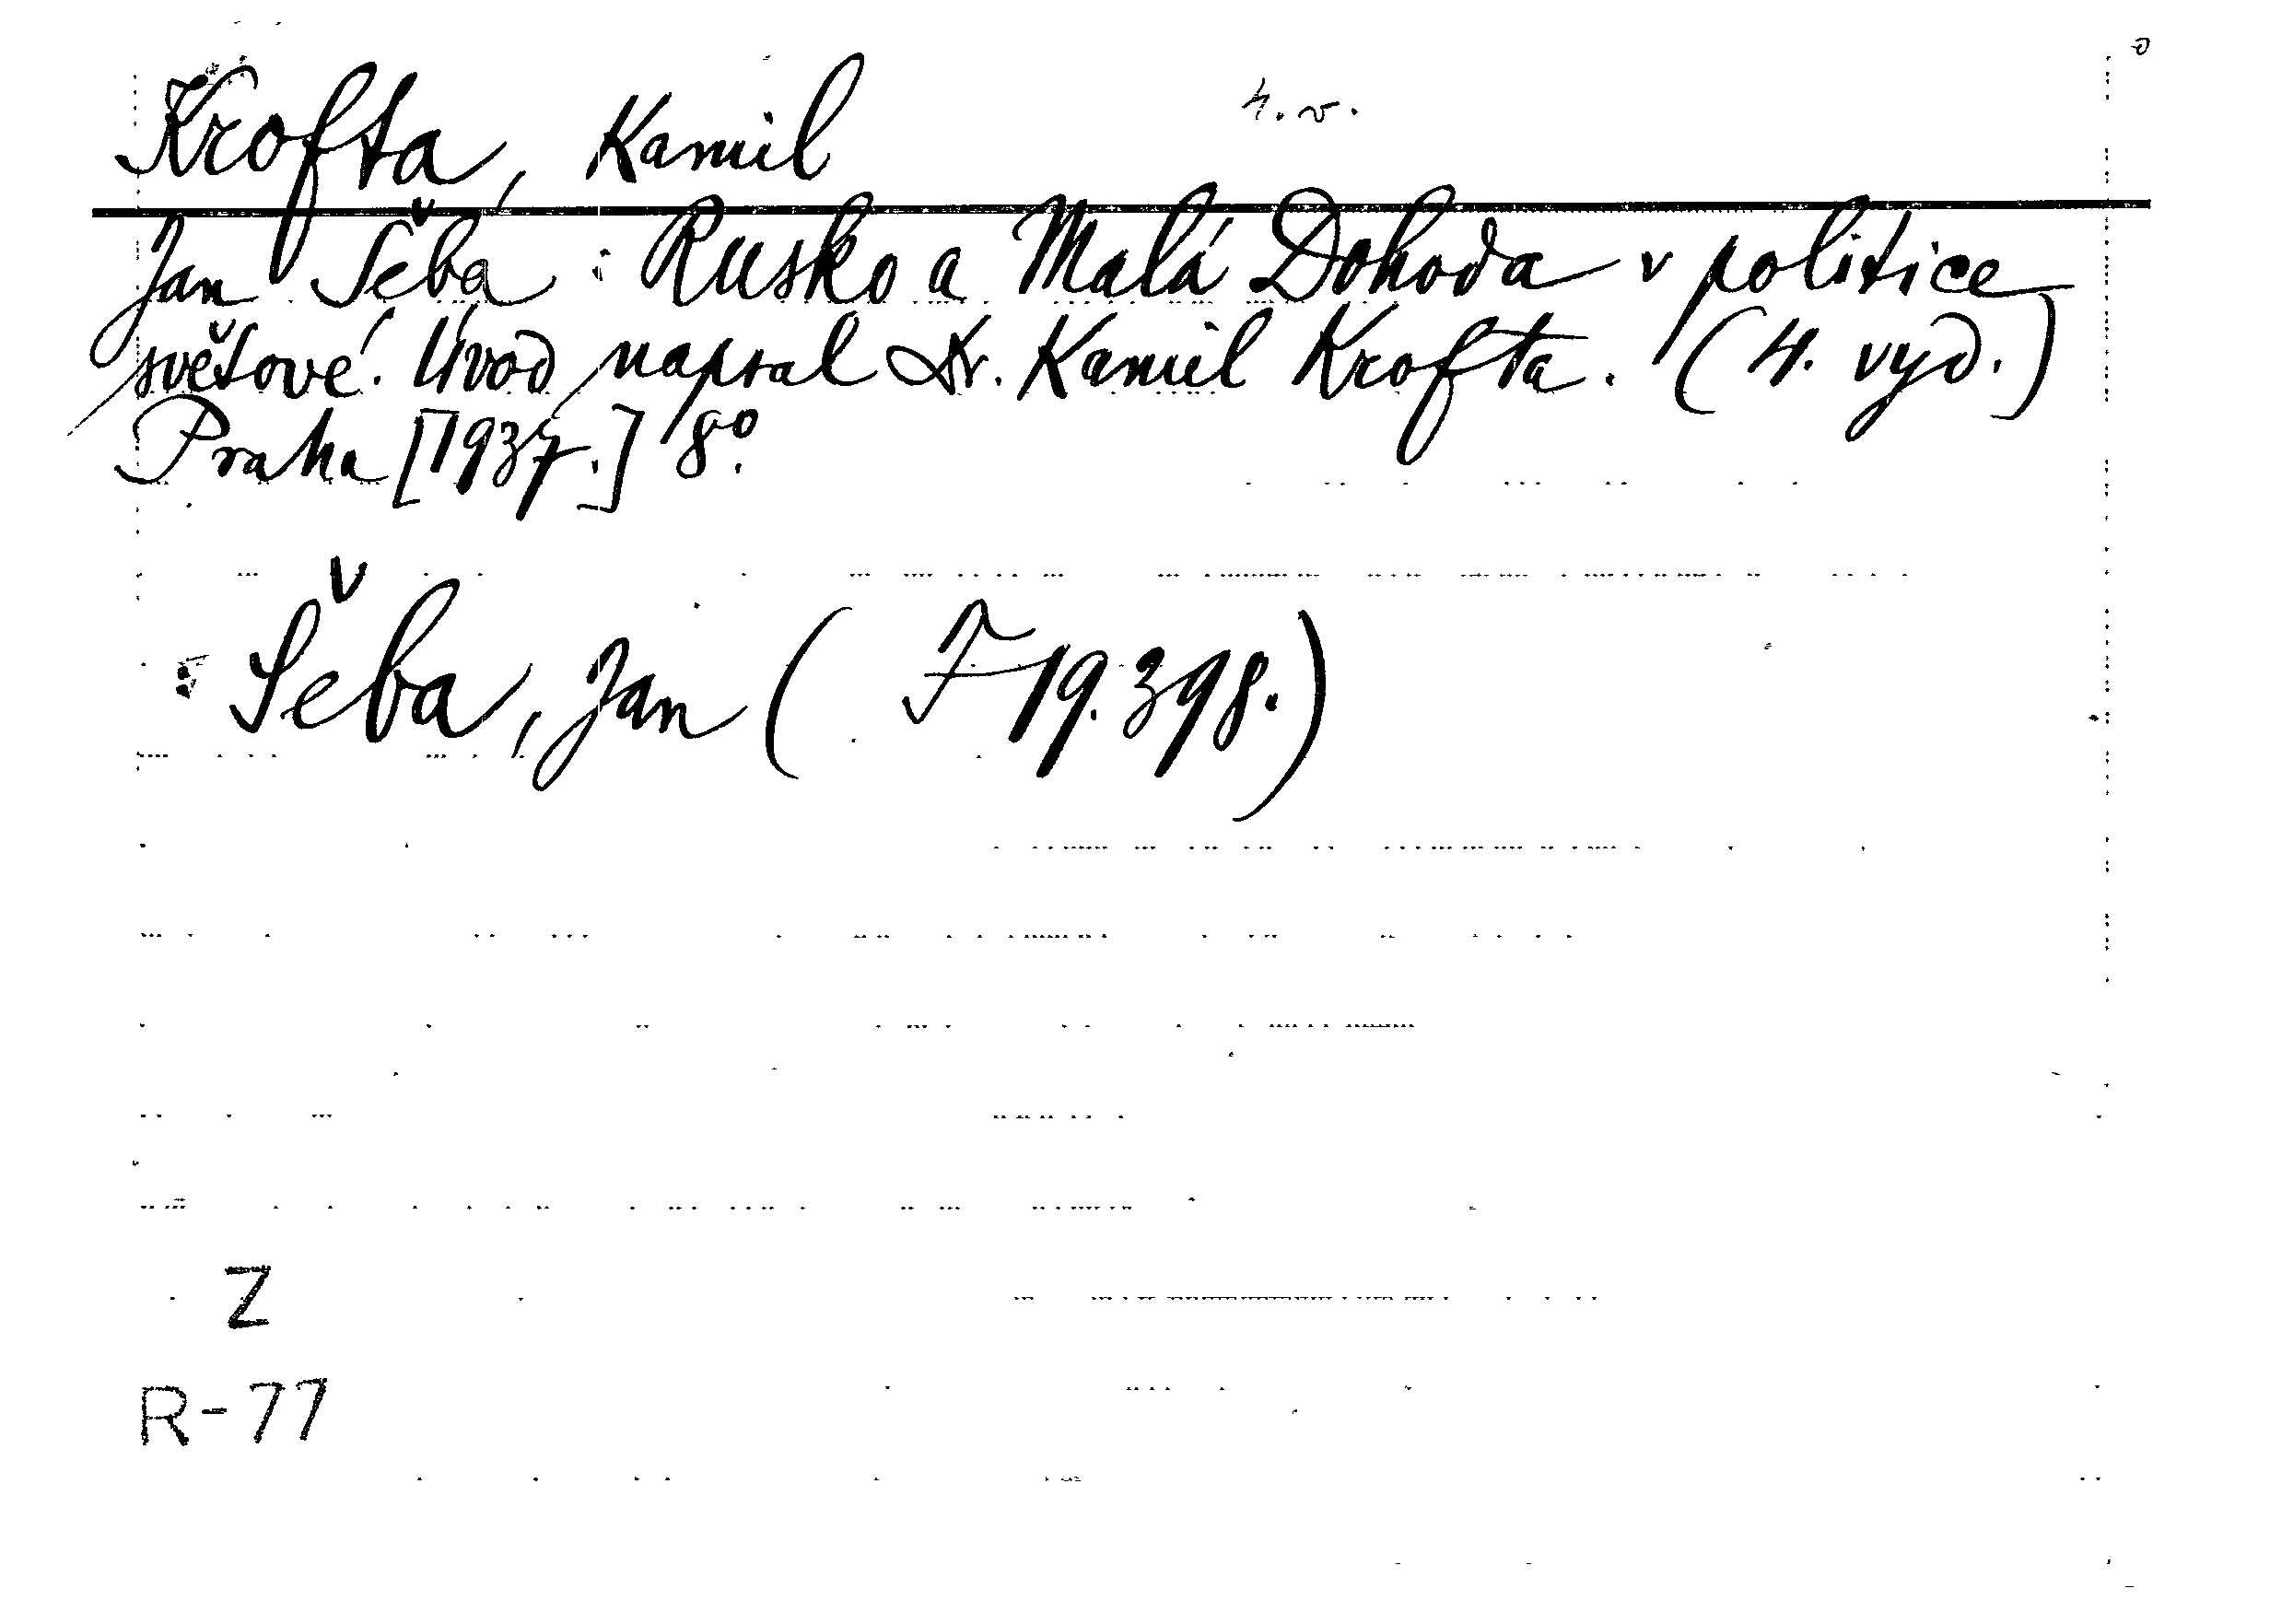 Krofta, Kamil
4. v.
Jan Šeba: Rusko a Malá Dohoda v politice
světové. Úvod napsal Dr. Kamil Krofta. (4. vyd.)
Praha [1937.] 8°.
Šeba, Jan ( F 19.398.)
Z
R-77